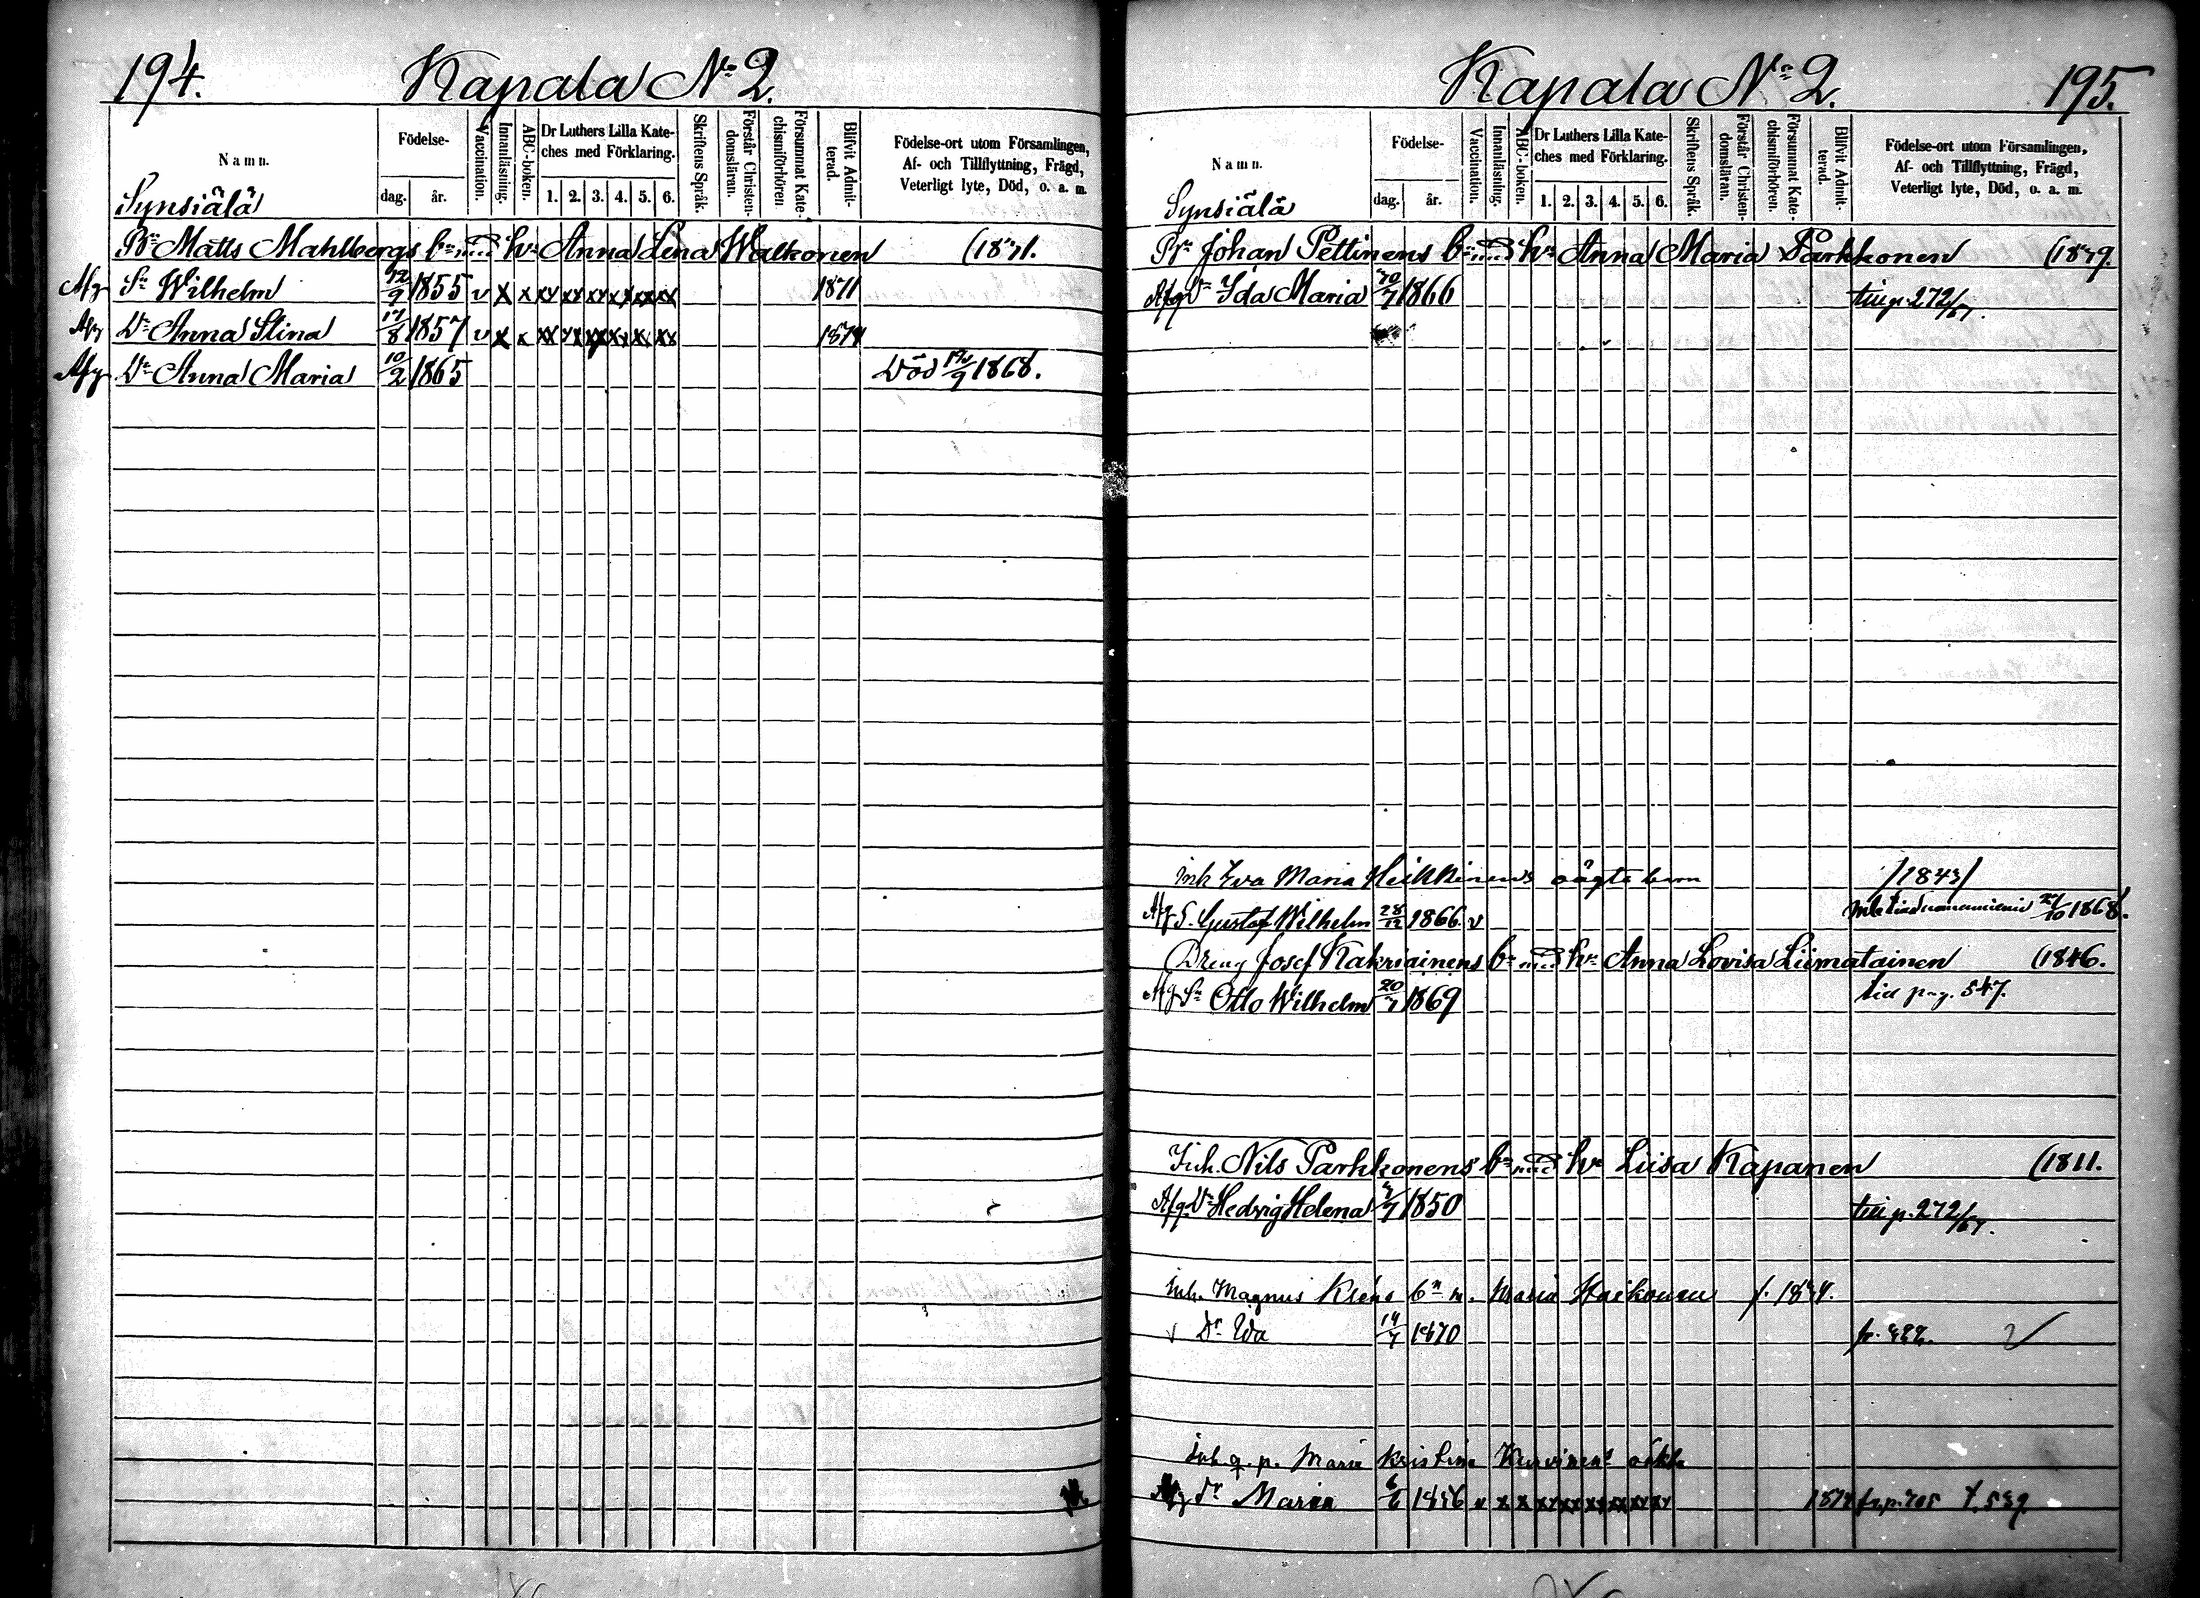 194.
Kapala № 2.
Namn.
Födelse-
dag. år.
Vaccination.
Innanläsning.
ABC-boken.
Dr Luthers Lilla Kate-
ches med Förklaring.
1. 2. 3. 4. 5. 6.
Skriftens Språk.
Förstår Christen-
domsläran.
Försummat Kate-
chismiförhören.
Blifvit Admit-
terad.
Födelse-ort utom Församlingen,
Af- och Tillflyttning, Frägd,
Veterligt lyte, Död, o. a. m.
Synsiälä
Matts Mahlbergs bn med hu Anna Lena Walkonen
Afg Sn Wilhelm 1855 v x x xx xx xx xx xx xx 1871
Afg Dr Anna Stina 17/8 1857 v x x xx xx xx xx xx xx 1874
Afg Dr Anna Maria 10/2 1865 Död 1868.
Kapala № 2.
195.
Namn.
Födelse-
dag. år.
Vaccination.
Innanläsning.
ABC-boken.
Dr Luthers Lilla Kate-
ches med Förklaring.
1. 2. 3. 4. 5. 6.
Skriftens Språk.
Förstår Christen-
domsläran.
Försummat Kate-
chismiförhören.
Blifvit Admit-
terad.
Födelse-ort utom Församlingen,
Af- och Tillflyttning, Frägd,
Veterligt lyte, Död, o. a. m.
Synsiälä
Johan Pettinens bn med hu Anna Maria Parkkonen
Afg Dr Ida Maria 1866 till p. 272/67.
inh Eva Maria Heikkinens oägta barn /1843/
Afg S. Gustaf Wilhelm 28/12 1866. v 27/10 1868.
Dreng Josef Kakriainens bn med hu Anna Lovisa Liimatainen (1846.
Afg Sn Otto Wilhelm 20/7 1869 till pag. 547.
Inh. Nils Parkkonens bn med hu Liisa Kapanen (1811.
Afg Dr Hedvig Helena 1850 till p. 272/67.
Inh. Magnus bn m. Maria
v Dr Ida 14/7 1870
Inh q. p. Maria Kristina
Afg Dr Maria 6/6 v x x xx xx xx xx xx xx 1874